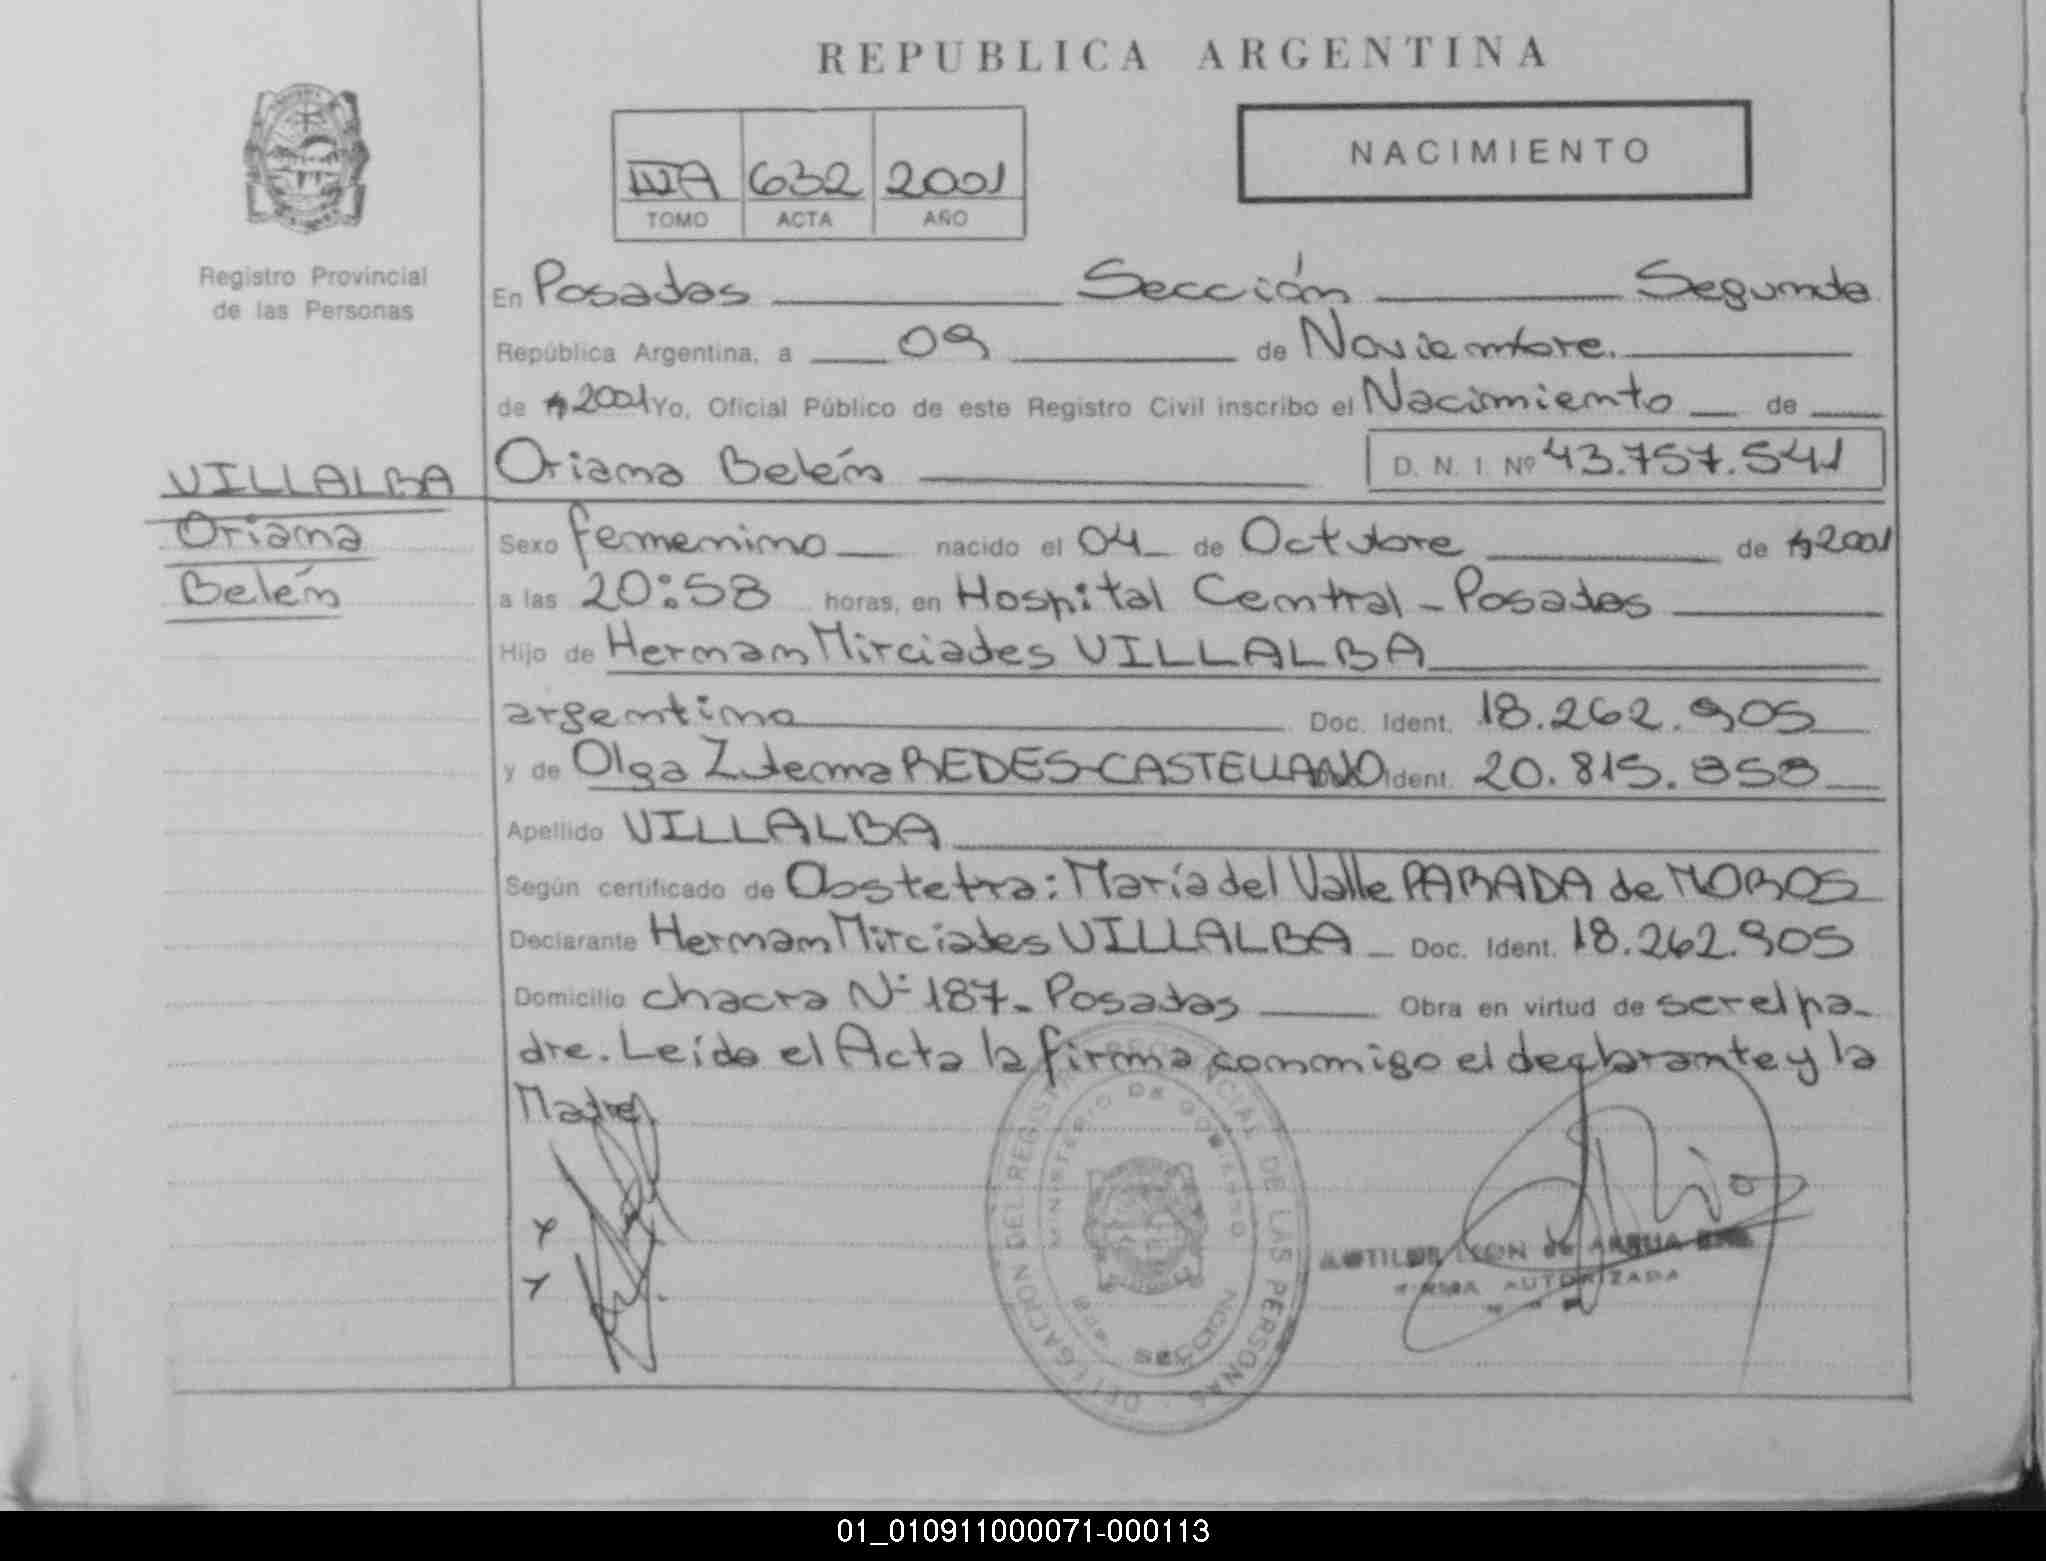 REPUBLICA ARGENTINA
NACIMIENTO
IIIA 632 2001
TOMO ACTA AÑO
Registro Provincial
de las Personas
En Posadas Sección Segunda
República Argentina, a 09 de Noviembre.
de 2001 Yo, Oficial Público de este Registro Civil inscribo el Nacimiento de
Oriana Belén D. N. I. Nº 43.757.541
VILLALBA
Oriana
Belén
Sexo femenino nacido el 04 de Octubre de 2001
a las 20:58 horas, en Hospital Central - Posadas
Hijo de Hernan Mirciades VILLALBA
argentino Doc. Ident. 18.262.905
y de Olga Zulema REDES-CASTELLANO Ident. 20.815.858
Apellido VILLALBA
Según certificado de Obstetra: María del Valle PARADA de MOROS
Declarante Hernan Mirciades VILLALBA Doc. Ident. 18.262.905
Domicilio chacra Nº 187- Posadas Obra en virtud de ser el pa-
dre. Leída el Acta la firma conmigo el declarante y la
Madre
DELEGACION DEL REGISTRO PROVINCIAL DE LAS PERSONAS
MINISTERIO DE GOBIERNO
SECCION
LEON de
FIRMA AUTORIZADA
01_010911000071-000113